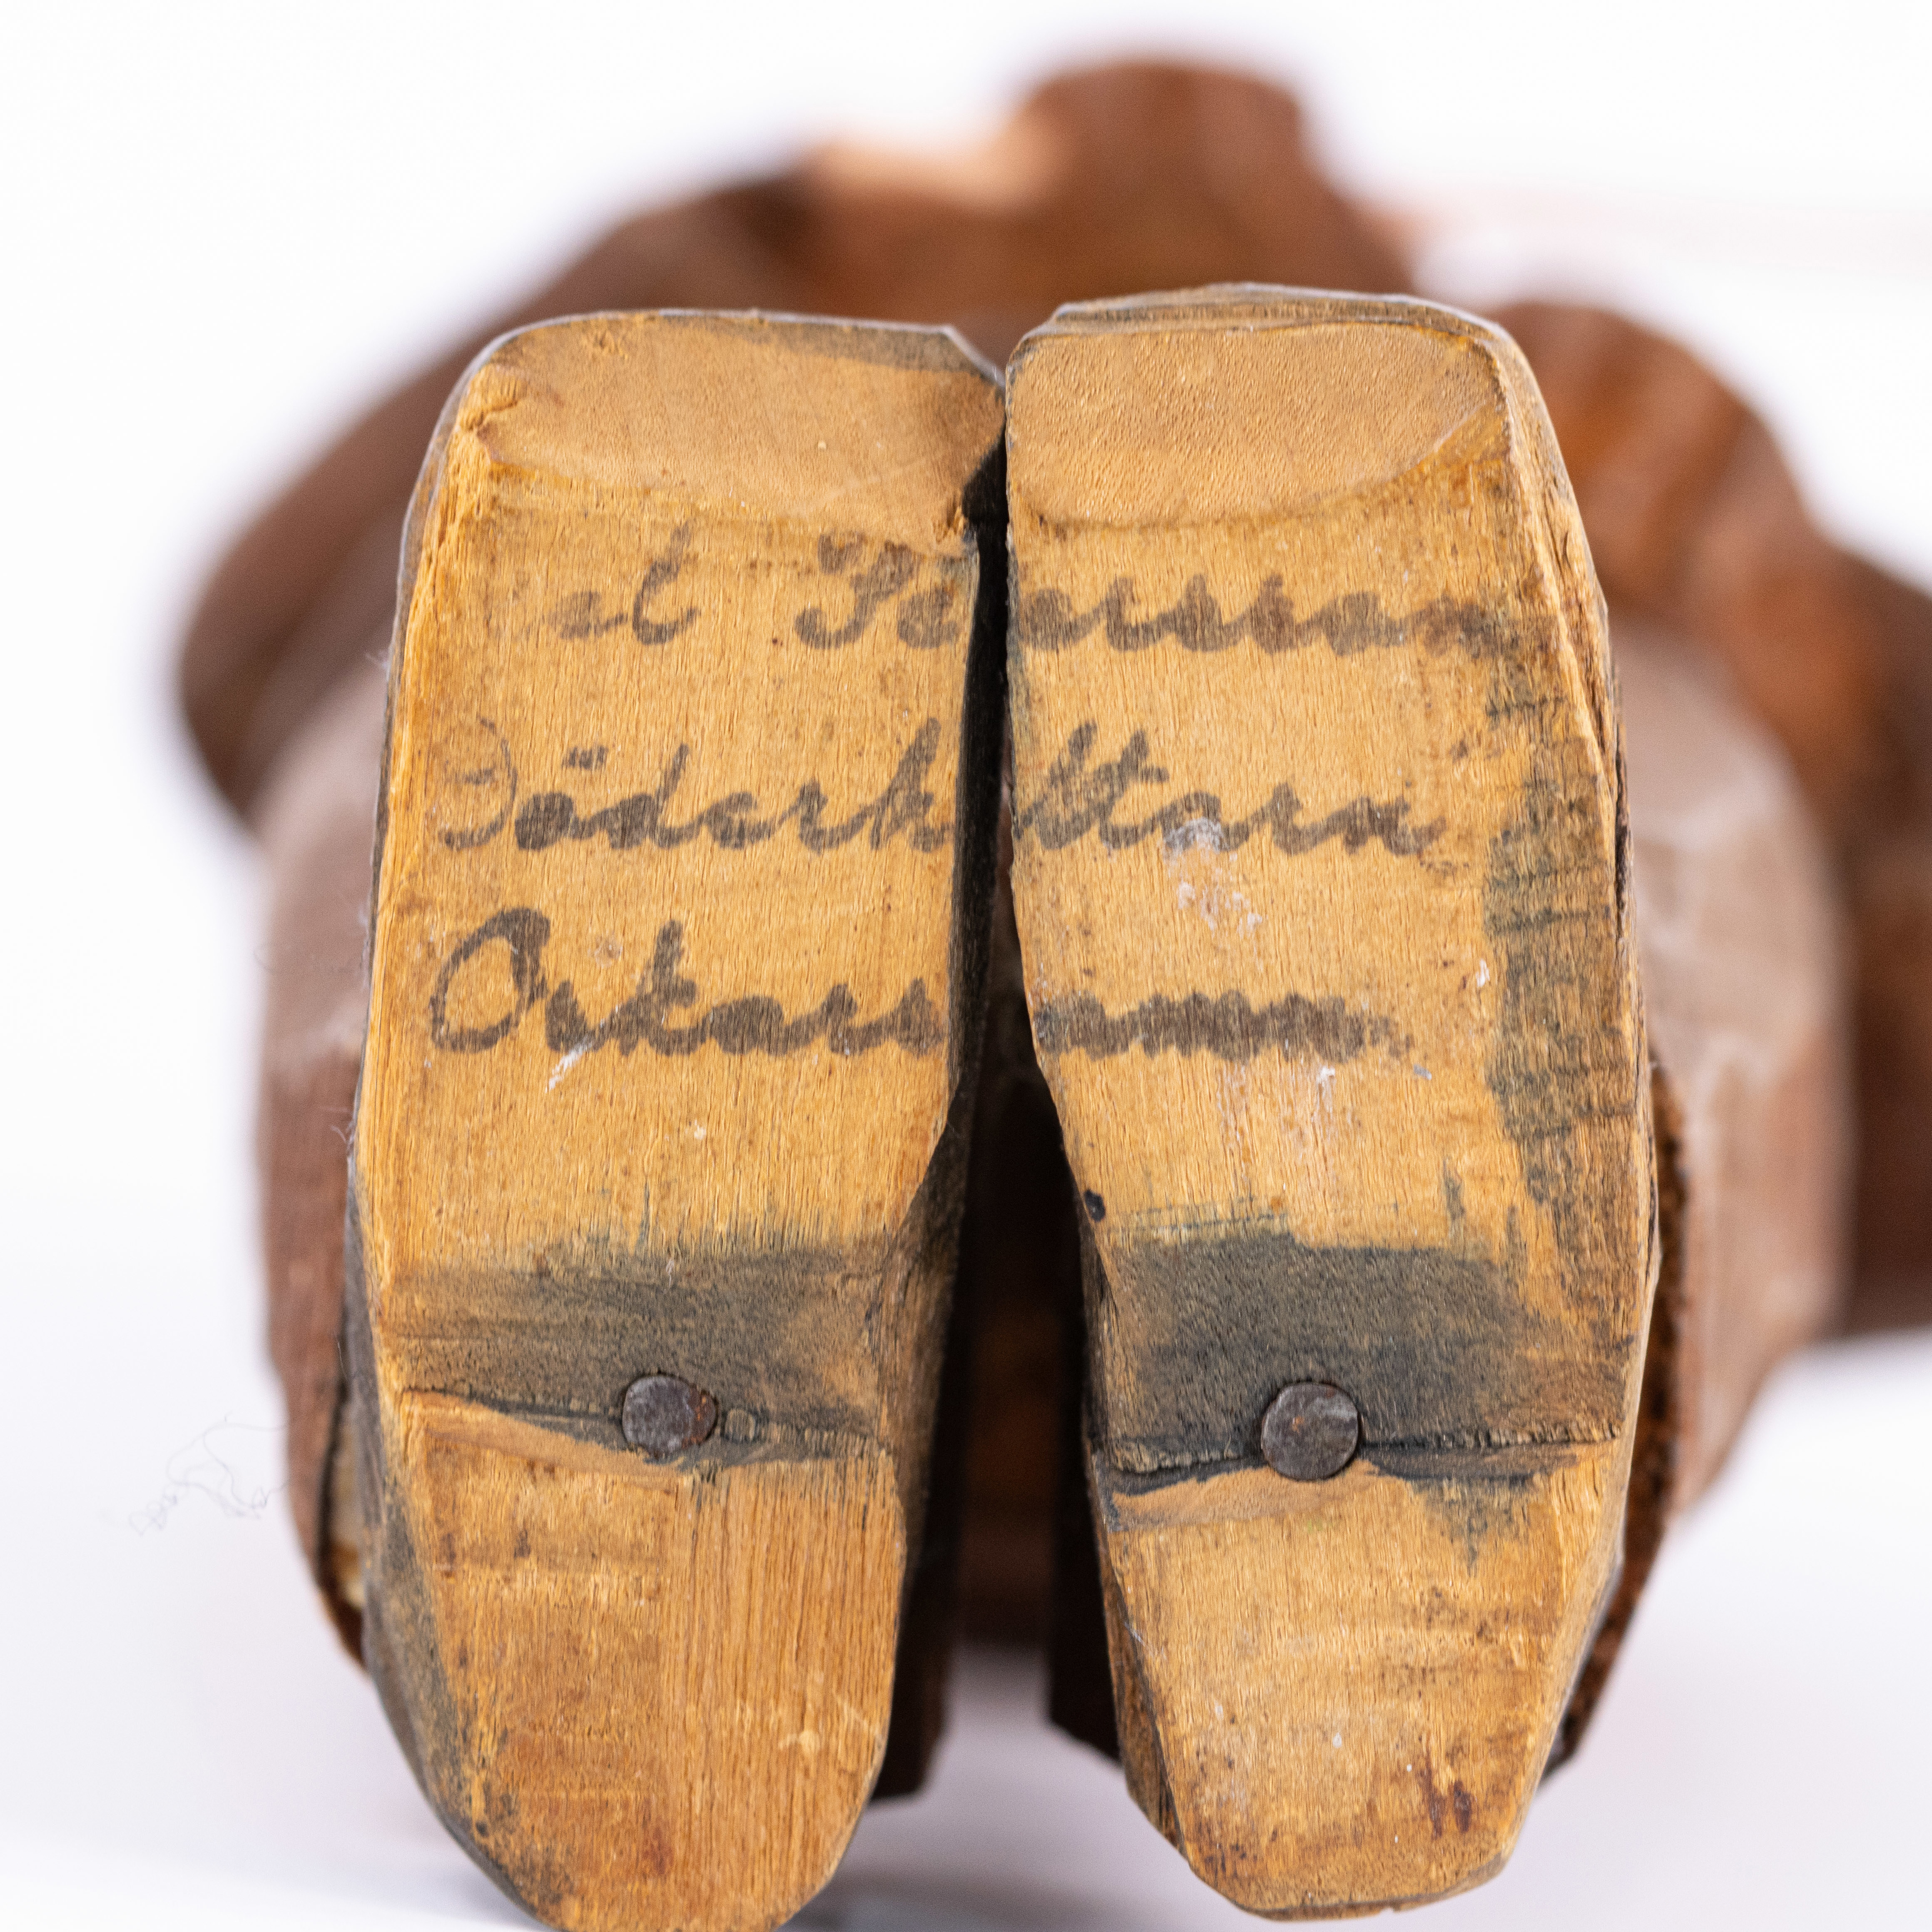 el Petersson
Döderhultarn
Oskarshamn